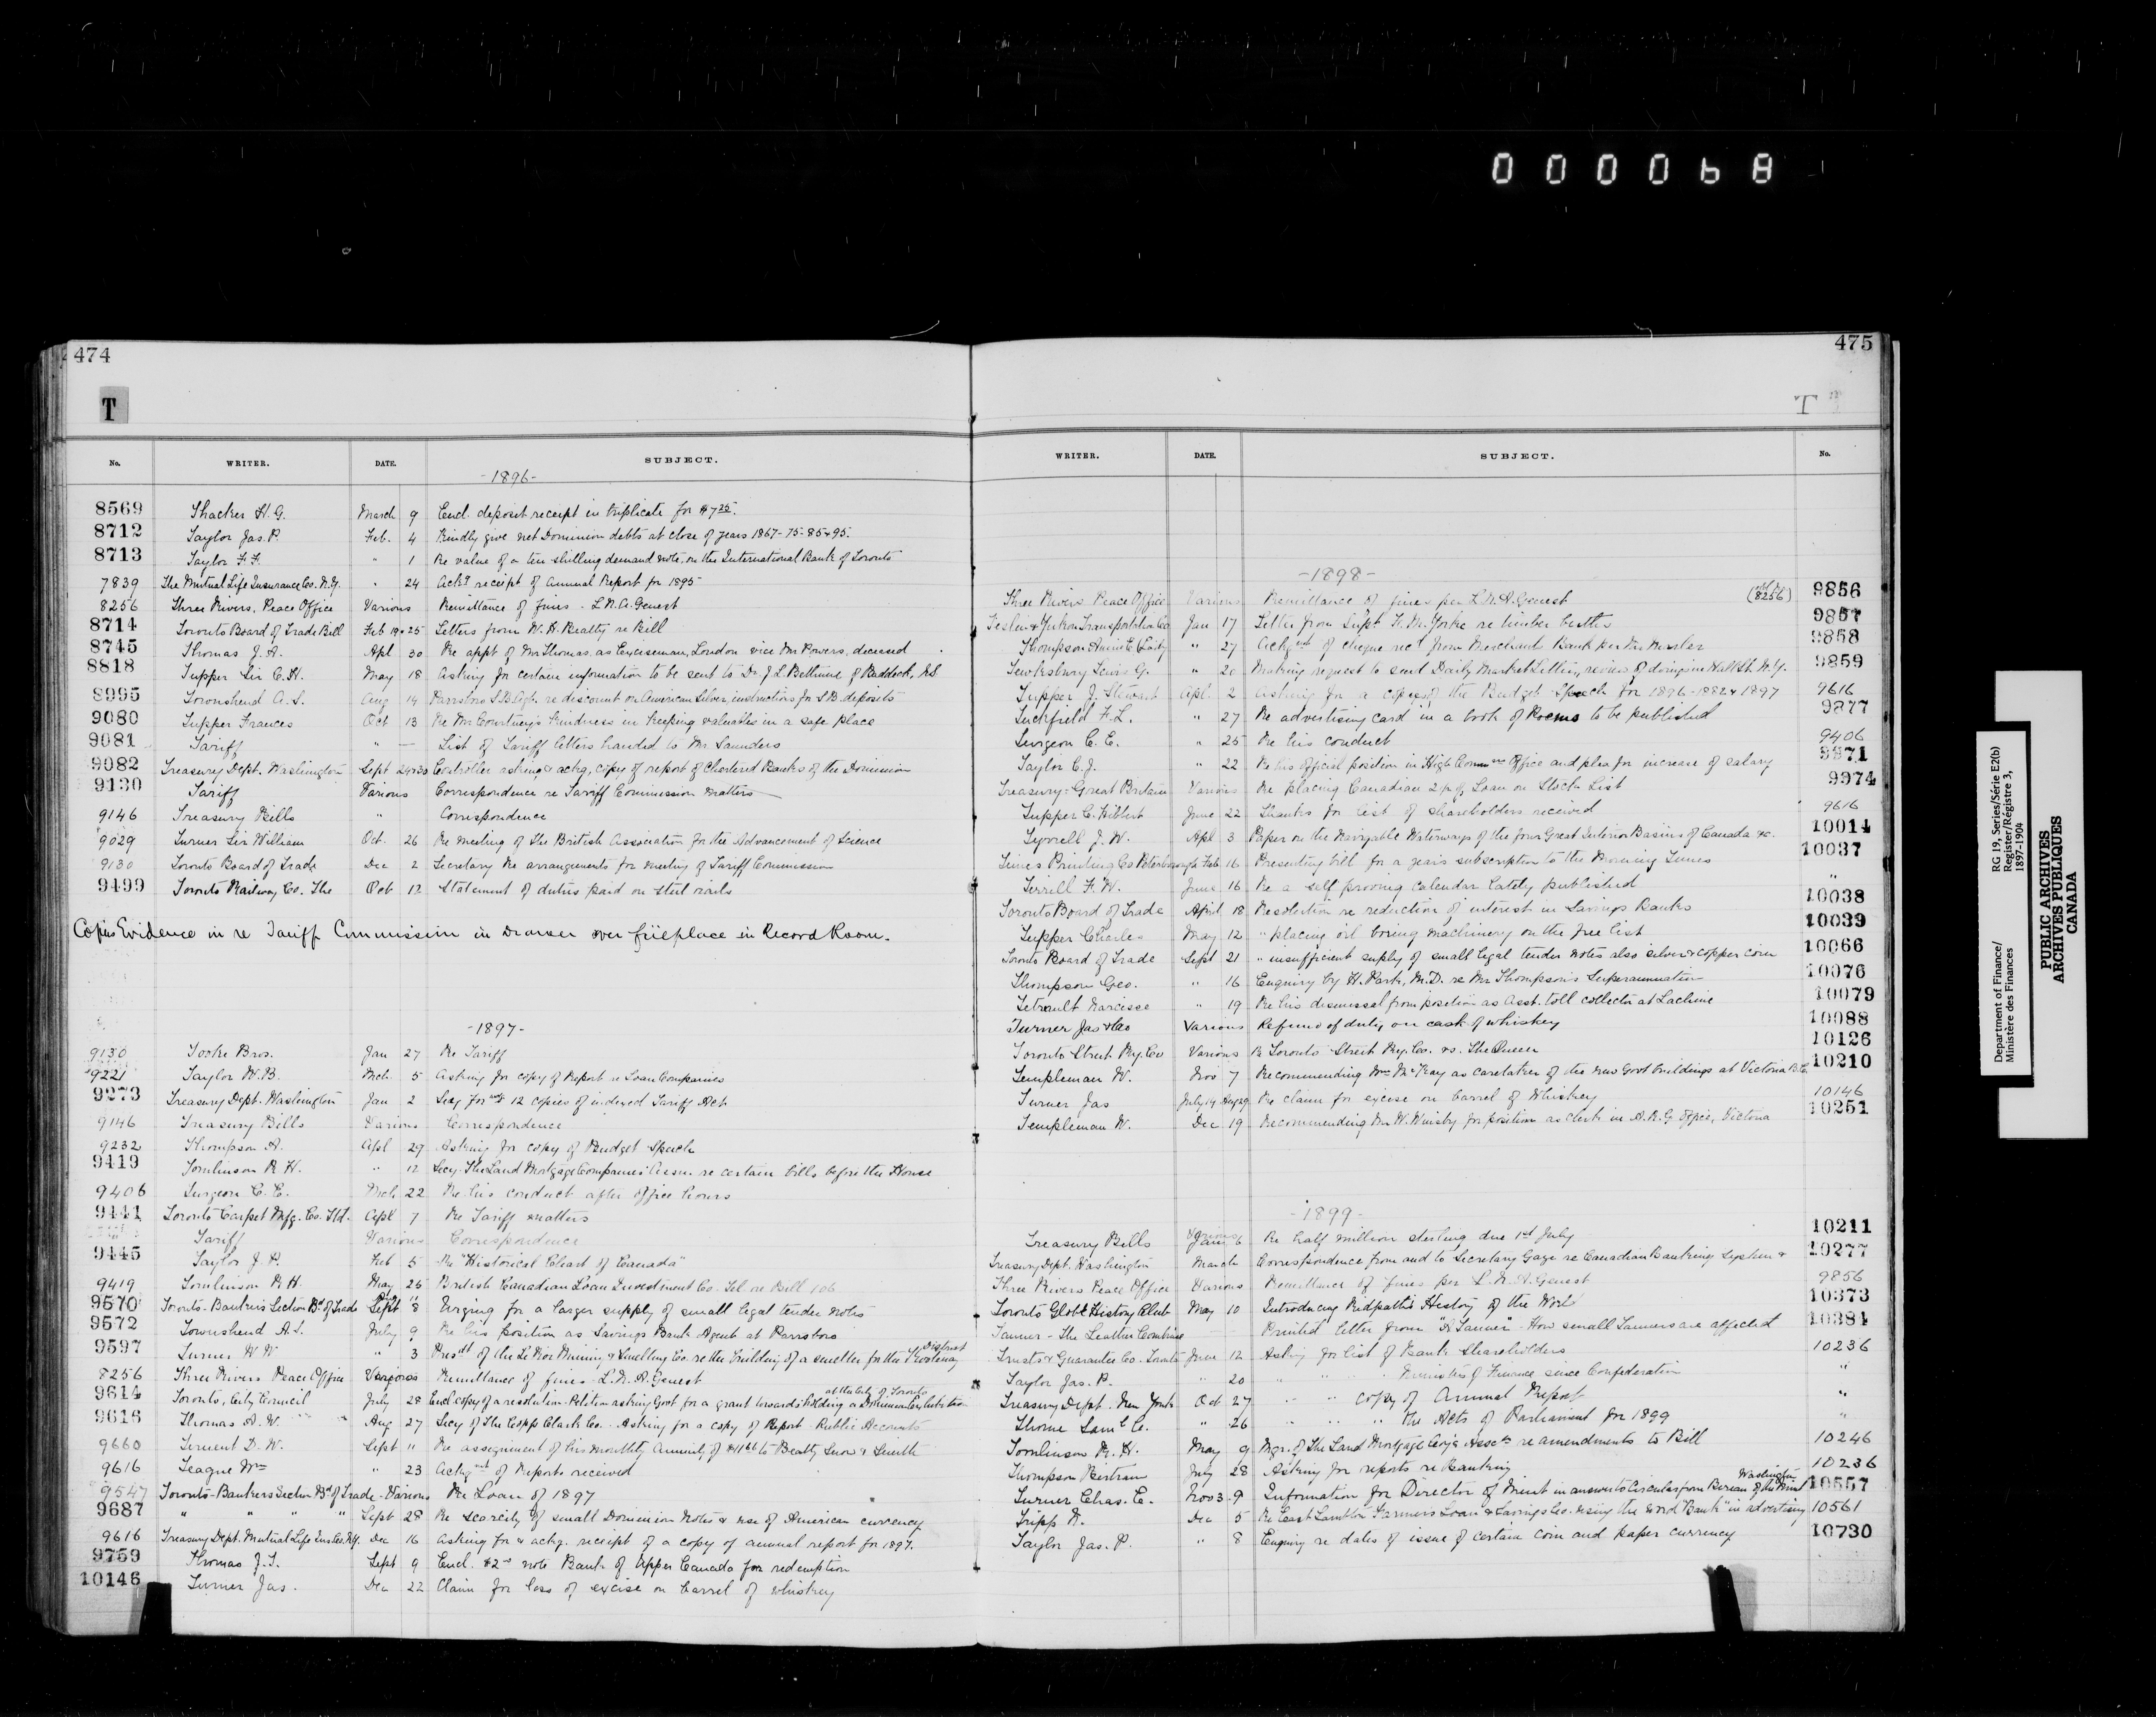 000068
474
T
No. WRITER. DATE. SUBJECT.
-1896-
8569 Thacker H. G. March 9 Encl. deposit receipt in triplicate for
8712 Taylor Jas. P. Feb. 4 Kindly give net Dominion debts at close of years 1867-75-85+95.
8713 Taylor F. F. " 1 Re value of a ten shilling demand note, on the International Bank of Toronto
7839 The Mutual Life Insurance Co. N.Y. " 24 receipt of Annual Report for 1895
8256 Three Rivers, Peace Office Various Remittance of fines - L.N.A. Genest
8714 Toronto Board of Trade Bill Feb 19+25 Letters from W. H. Beatty re Bill
8745 Thomas J. A. Apl 30 Re appt of Mr Thomas, as Exciseman, London vice Mr Powers, deceased
8818 Tupper Sir C. H. May 18 Asking for certain information to be sent to Dr. J. L. Bethune of Baddeck, N.S.
8995 Townshend A. S. Aug 14 Parrsboro S.B. Agt. re discount on American Silver, instructions for S.B. deposits
9080 Tupper Frances Oct 13 Re Mr Courtney's kindness in keeping valuables in a safe place
9081 Tariff " — List of Tariff letters handed to Mr. Saunders
9082 Treasury Dept. Washington Sept 24+30 Controller asking & ackg. copy of report of Chartered Banks of the Dominion
9130 Tariff Various Correspondence re Tariff Commission matters
9146 Treasury Bills " Correspondence
9029 Turner Sir William Oct. 26 Re meeting of the British Association for the Advancement of Science
9130 Toronto Board of Trade Dec 2 Secretary Re arrangements for meeting of Tariff Commission
9499 Toronto Railway Co. The Oct 12 Statement of duties paid on steel rails
Copies Evidence in re Tariff Commission in Drawer over fireplace in Record Room.
-1897-
9130 Tooke Bros. Jan 27 Re Tariff
9221 Taylor W. B. Mch. 5 Asking for copy of Report re Loan Companies
9273 Treasury Dept. Washington Jan 2 12 copies of indexed Tariff Act
9146 Treasury Bills Various Correspondence
9232 Thompson A. Apl 29 Asking for copy of Budget Speech
9419 Tomlinson R H. " 12 Secy. The Land Mortgage Companies' Assn. re certain bills before the House
9406 Turgeon C. E. Mch 22 Re his conduct after office hours
9441 Toronto Carpet Mfg. Co. Ltd. Apl 7 Re Tariff matters
Tariff Various Correspondence
9445 Taylor J. P. Feb 5 Re "Historical Chart of Canada"
9419 Tomlinson R H. May 25 British Canadian Loan Investment Co. Tel re Bill 106
9570 Toronto-Bankers Section Bd of Trade Sept 8 Urging for a larger supply of small legal tender notes
9572 Townshend A. S. July 9 Re his position as Savings Bank Agent at Parrsboro
9597 Turner W W " 3 Presdt of the Le Roi Mining & Smelting Co. re the building of a smelter for the Kootenay District
8256 Three Rivers Peace Office Various Remittance of fines - L. N. A. Genest
9614 Toronto, City Council July 28 Encl copy of a resolution. Petition asking Govt for a grant towards holding a Dominion Exhibition at the City of Toronto
9616 Thomas A. W. Aug 27 Secy of The Copp Clark Co. Asking for a copy of Report - Public Accounts
9660 Terment D. W. Sept 11 Re assignment of his monthly annuity of to Beatty Snow & Smith
9616 Teague Wm " 23 Ackgmt of Reports received
9547 Toronto-Bankers Section Bd of Trade - Various Re Loan of 1897
9687 " " " " Sept 28 Re scarcity of small Dominion Notes & use of American currency
9616 Treasury Dept. Mutual Life Ins Co. N.Y. Dec 16 Asking for & ackg. receipt of a copy of annual report for 1897.
9759 Thomas J. T. Sept 9 Encl. $2 note Bank of Upper Canada for redemption
10146 Turner Jas. Dec 22 Claim for loss of excise on barrel of whiskey
475
T
WRITER. DATE. SUBJECT. No.
-1898-
Three Rivers Peace Office Various Remittance of fines per L. N. A. Genest (8256) 9856
Teslin & Yukon Transportation Co Jan 17 Letter from Supt F. M. Yorke re timber berths 9857
Thompson Annie E (Lady " 27 Ackgmt of cheque rec'd from Merchants Bank per Mr 9858
Tewksbury Lewis G. " 20 Making request to send Daily Market Letter, review of doings in Wall St. N.Y. 9859
Tupper J. Stewart Apl. 2 Asking for a copies of the Budget Speech for 1896-1882 & 1897 9616
Tuckfield F. L. " 27 Re advertising card in a book of Poems to be published 9877
Turgeon C. E. " 25 Re his conduct 9406
Taylor C. J. " 22 Re his official position in High Commrs Office and plea for increase of salary 9971
Treasury - Great Britain Various Re placing Canadian 2½ % Loan on Stock List 9974
Tupper C. Hibbert June 22 Thanks for list of shareholders received 9616
Tyrrell J. W. Apl 3 Paper on the Navigable Waterways of the four Great Interior Basins of Canada &c. 10014
Times Printing Co Peterborough Feb 16 Presenting bill for a years subscription to the Morning Times 10037
Terrill F. W. June 16 Re a self proving Calendar lately published "
Toronto Board of Trade April 18 Resolution re reduction of interest in Savings Banks 10038
Tupper Charles May 12 " placing oil boring machinery on the free list 10039
Toronto Board of Trade Sept 21 " insufficient supply of small legal tender notes also silver & copper coin 10066
Thompson Geo. " 16 Enquiry by H. Park, M.D. re Mr Thompson's Superannuation 10076
Tetreault Narcisse " 19 Re his dismissal from position as Asst. toll collector at Lachine 10079
Turner Jas & Co Various Refund of duty on cask of whiskey 10088
Toronto Street Ry. Co Various Re Toronto Street Ry. Co. vs. The Queen 10126
Templeman W. Nov 7 Recommending Wm McKay as caretaker of the new Govt buildings at Victoria B.C. 10210
Turner Jas July 14 Aug 29 Re claim for excise on barrel of Whiskey 10146
Templeman W. Dec 19 Recommending Mr W. Winsby for position as clerk in A.R.G. Office, Victoria 10251
-1899-
Treasury Bills Various Jan 6 Re half million sterling due 1st July 10211
Treasury Dept. Washington March Correspondence from and to Secretary Gage re Canadian Banking System & 10277
Three Rivers Peace Office Various Remittance of fines per L. N. A. Genest 9856
Toronto Globe History Club May 10 Introducing Ridpath's History of the World 10373
Tanner - The Leather Combine Printed letter from "A Tanner" - How small Tanners are affected 10384
Trusts & Guarantee Co. Toronto June 12 Asking for list of Bank Shareholders 10236
Taylor Jas. P. " 20 " " " Ministers of Finance since Confederation "
Treasury Dept. New York Oct 27 " " copy of Annual Report "
Thorne Saml C. " 26 " " " The Acts of Parliament for 1899 "
Tomlinson R. H. May 9 Mgr. of The Land Mortgage Coy's Assocn re amendments to Bill 10246
Thompson Bertram July 28 Asking for reports re Banking 10236
Turner Chas. E. Nov 3-9 Information for Director of Mint in answer to Circular from Bureau of the Mint Washington 10557
Tripp R. Dec 5 Re East Lambton Farmers Loan & Savings Co. using the word "Bank" in advertising 10561
Taylor Jas. P. " 8 Enquiry re dates of issue of certain coin and paper currency 10730
Department of Finance/
Ministère des Finances
RG 19, Series/Série E2(b)
Register/Régistre 3,
1897-1904
PUBLIC ARCHIVES
ARCHIVES PUBLIQUES
CANADA